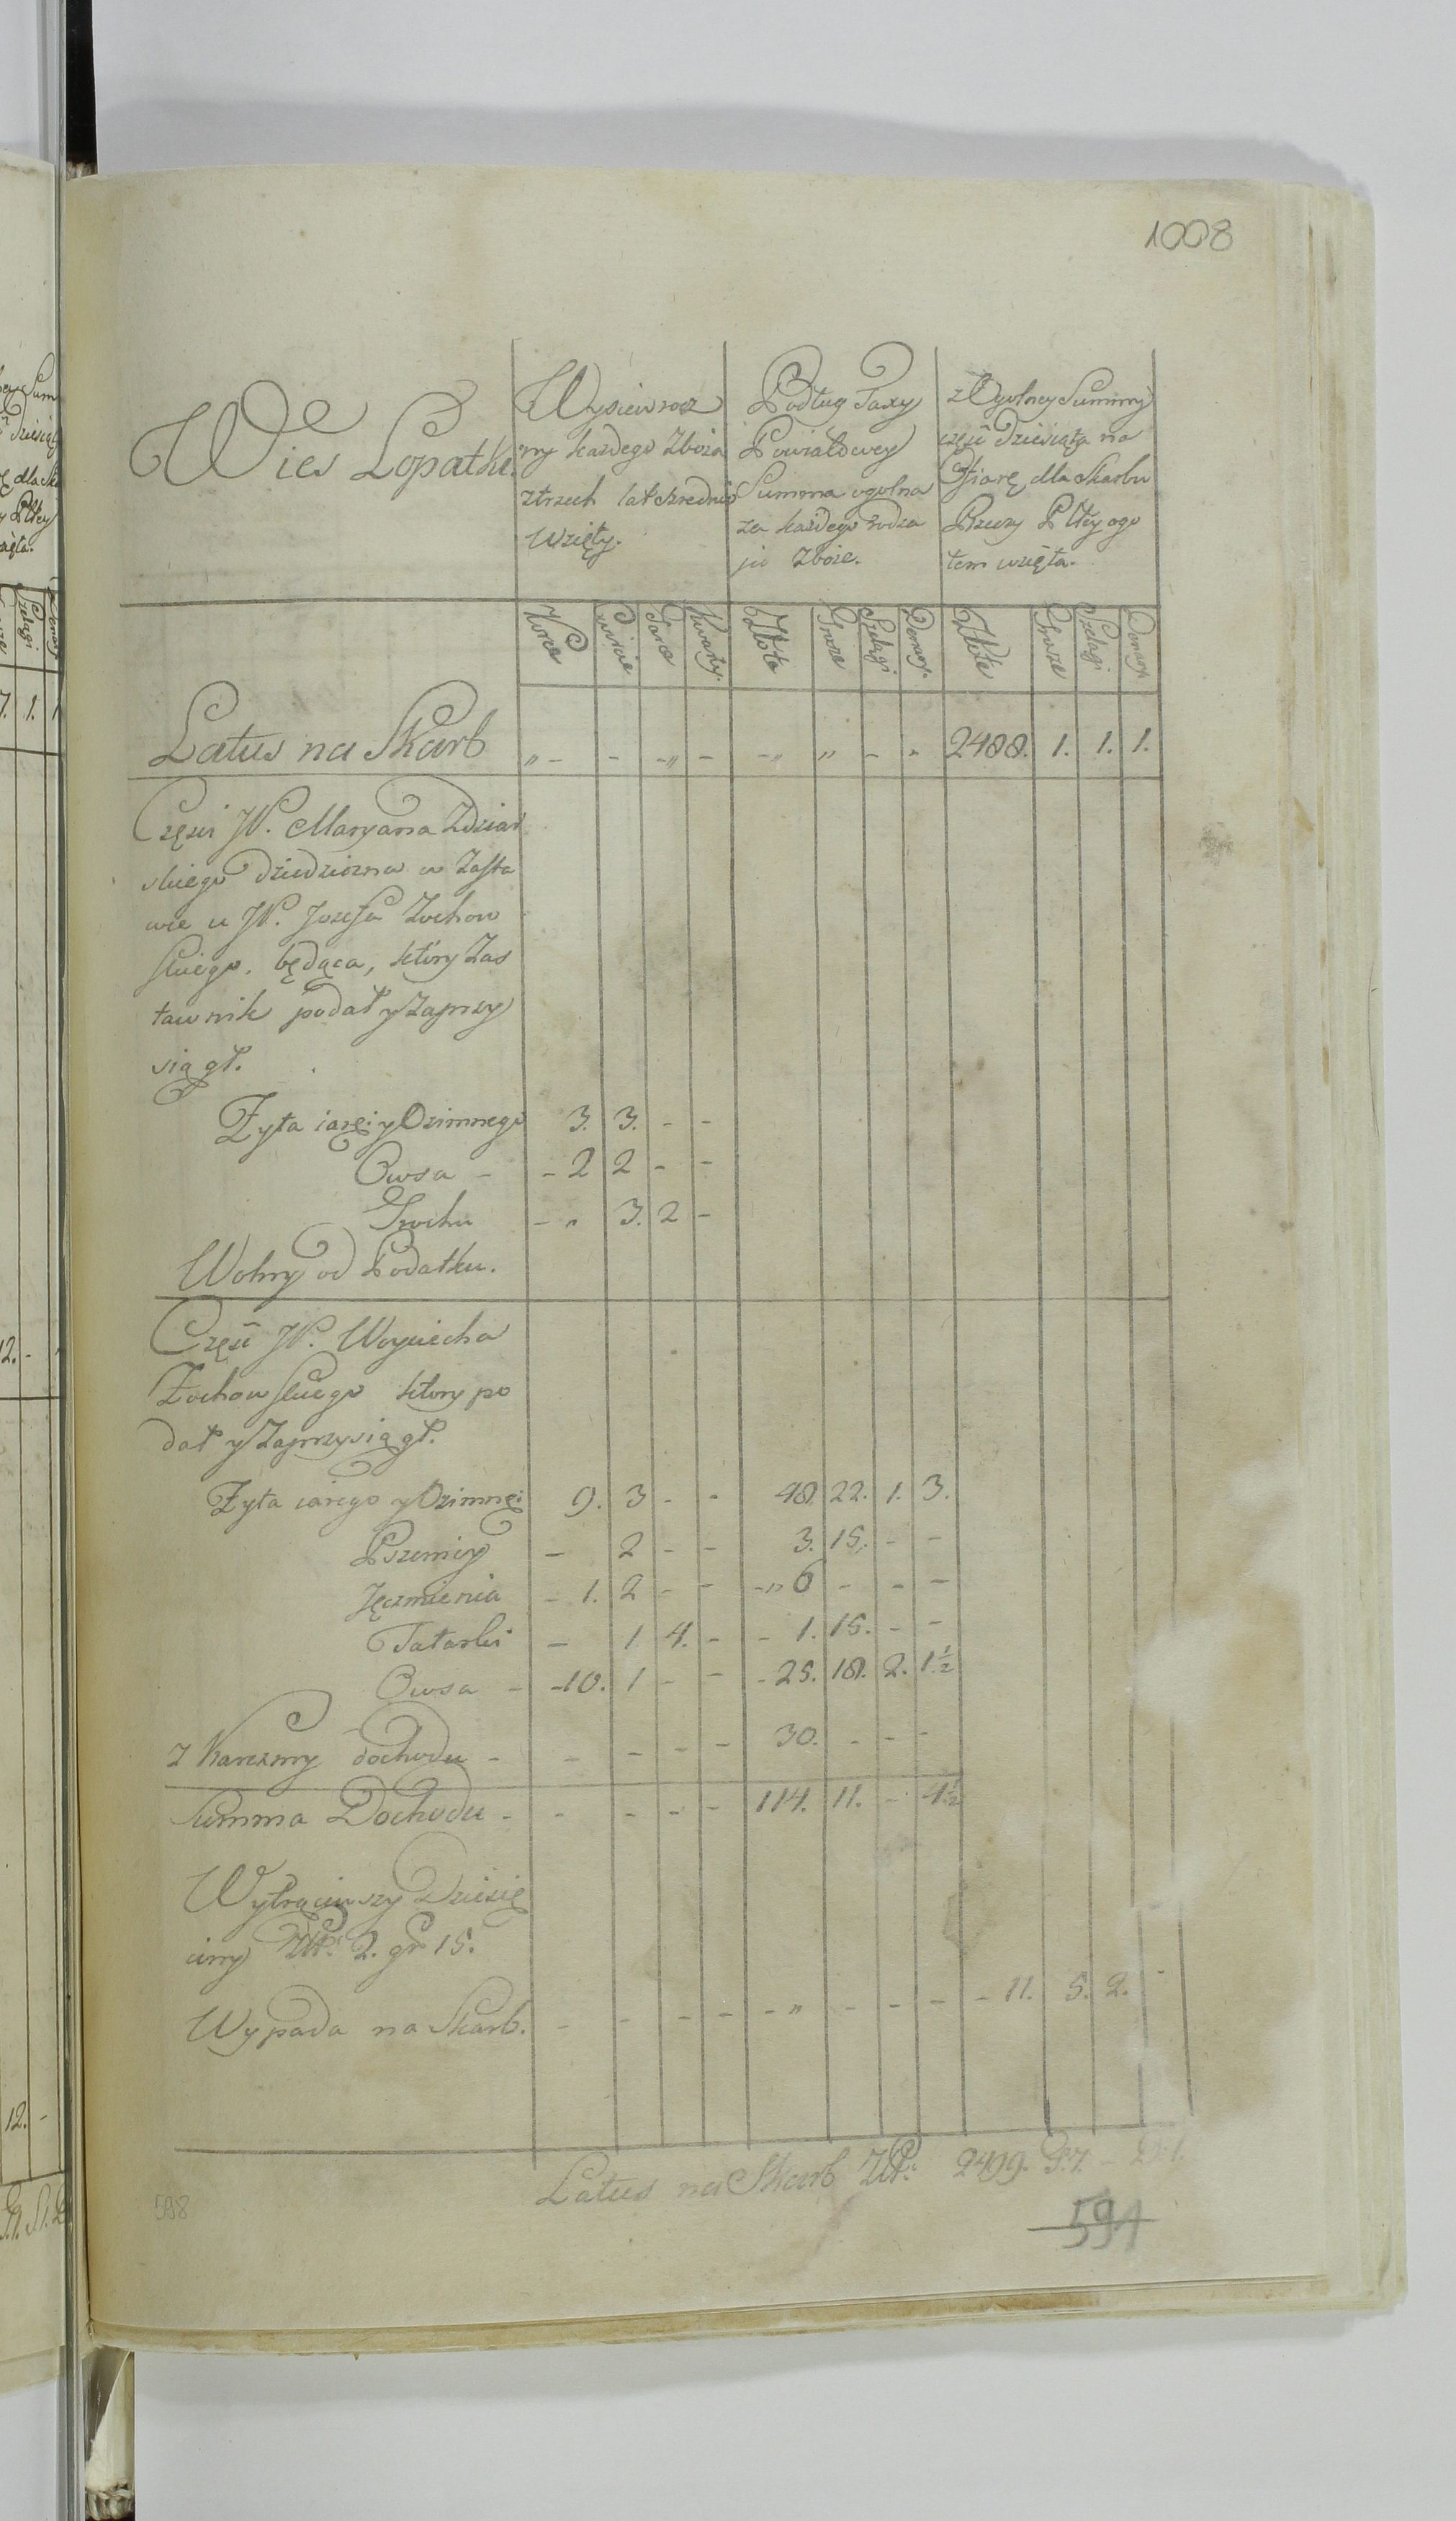 1008
Wies Lopatki.
Wysiew rocz
ny każdego Zboża
ztrzech lat średnio
wzięty.
Podług Taxy
Powiatowey
Summa ogolna
za każdego rodza
ju Zboże.
z Ogolney Summy
część Dziesiąta na
Ofiarę dla Skarbu
Rzeczy Pltey ogo
łem wzięta.
Korce Cwircie Garce Kwarty. Złote Grosze Szelągi Denary. Złote Grosze Szelągi Denary
Latus na Skarb „ - - - „ - - „ „ - „ 2488. 1. 1. 1.
Części JP. Maryana Zdziar
skiego Dziedziczna w Zasta
wie u JP. Jozefa Zochow
skiego. będąca, który Zas
tawnik podał y Zaprzy
siągł.
Żyta iarę: y Ozimnego 3. 3. - -
Owsa - - 2 2 - -
Grochu - „ 3. 2 -
Wolny od Podatku.
Część JP. Woyciecha
Żochowskiego który po
dał y Zaprzysiągł.
Żyta iarego y Ozimnę: 9. 3 - - 48. 22. 1. 3.
Pszenicy - 2 - - 3. 15. - -
Jęczmienia - 1. 2 - - - „ 6 - - -
Tatarki - 1 4. - - 1. 15. - -
Owsa - - 10. 1 - - - 25. 18. 2. 1 1/2
z Karczmy dochodu - - - - - 30. - - -
Summa Dochodu - - - - - 114. 11. - 4 1/2
Wytrąciwszy Dziesię
ciny Złt: 2. gr 15.
Wypada na Skarb. - - - - - „ - - - - 11. 5. 2. -
Latus na Skarb Złt: 2499. G. 7. -
598
591